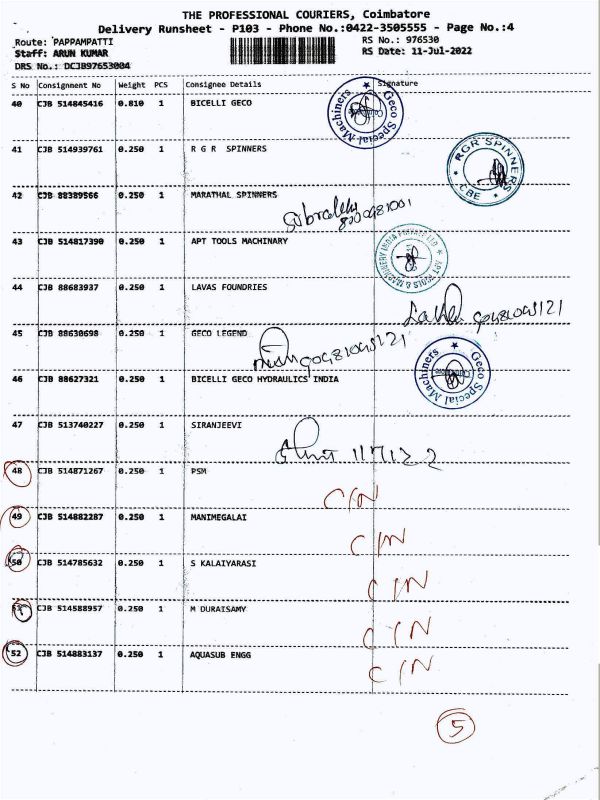 THE PROFESSIONAL COURIERS, Coimbatore
Delivery Runsheet - P103 - Phone No.:0422-3505555 - Page No.:4
Route: PAPPAMPATTI RS No.: 976530
Staff: ARUN KUMAR RS Date: 11-Jul-2022
DRS No.: DCJB97653004
S No Consignment No Weight PCS Consignee Details Signature
40 CJB 514845416 0.810 1 BICELLI GECO
Geco Special Machiners
41 CJB 514939761 0.250 1 R G R SPINNERS
RGR SPINNERS CBE
42 CJB 88389566 0.250 1 MARATHAL SPINNERS
43 CJB 514817390 0.250 1 APT TOOLS MACHINARY
APT TOOLS & MACHINERY INDIA PRIVATE LTD
44 CJB 88683937 0.250 1 LAVAS FOUNDRIES
9048104S121
45 CJB 88630698 0.250 1 GECO LEGEND
9048104S121
46 CJB 88627321 0.250 1 BICELLI GECO HYDRAULICS INDIA
Geco Special Machiners
47 CJB 513740227 0.250 1 SIRANJEEVI
117122
48 CJB 514871267 0.250 1 PSM
C/N
49 CJB 514882287 0.250 1 MANIMEGALAI
C/N
50 CJB 514785632 0.250 1 S KALAIYARASI
C/N
51 CJB 514588957 0.250 1 M DURAISAMY
C/N
52 CJB 514883137 0.250 1 AQUASUB ENGG
C/N
5